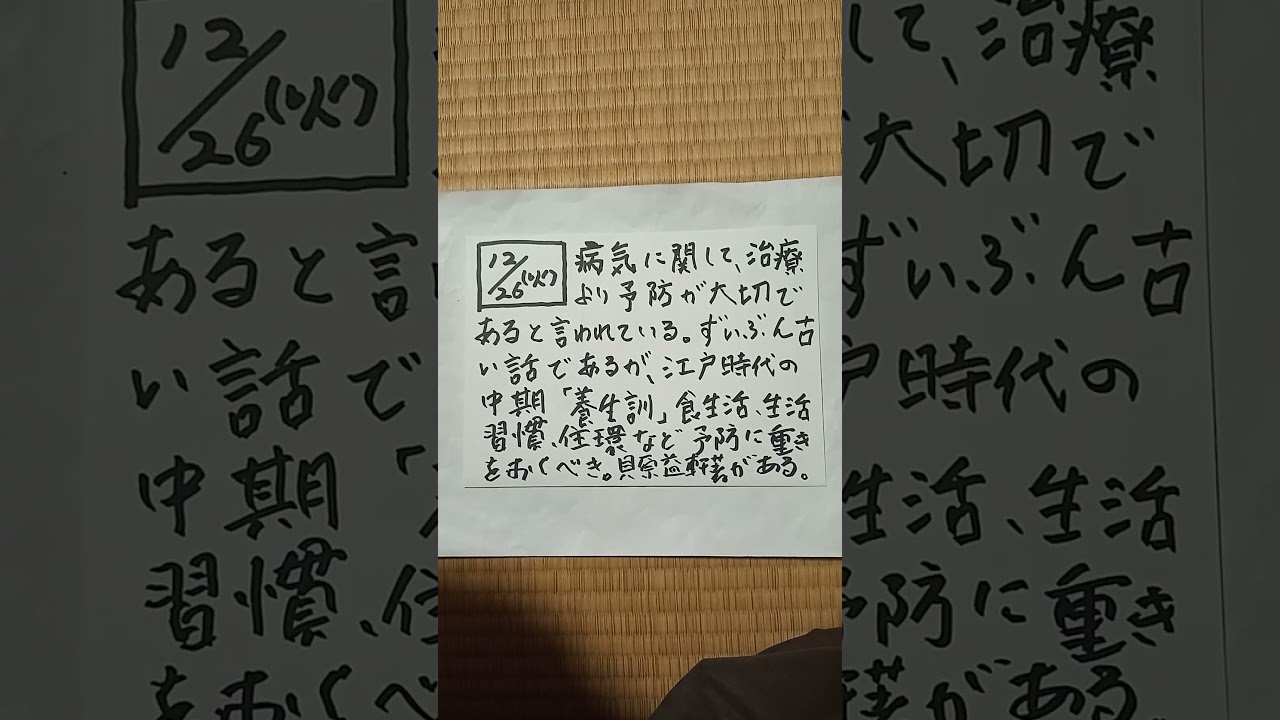 12/26(火)
病気に関して、治療
より予防が大切で
あると言われている。ずいぶん古
い話であるが、江戸時代の
中期「養生訓」食生活、生活
習慣、住環など予防に重き
をおくべき。貝原益軒著がある。